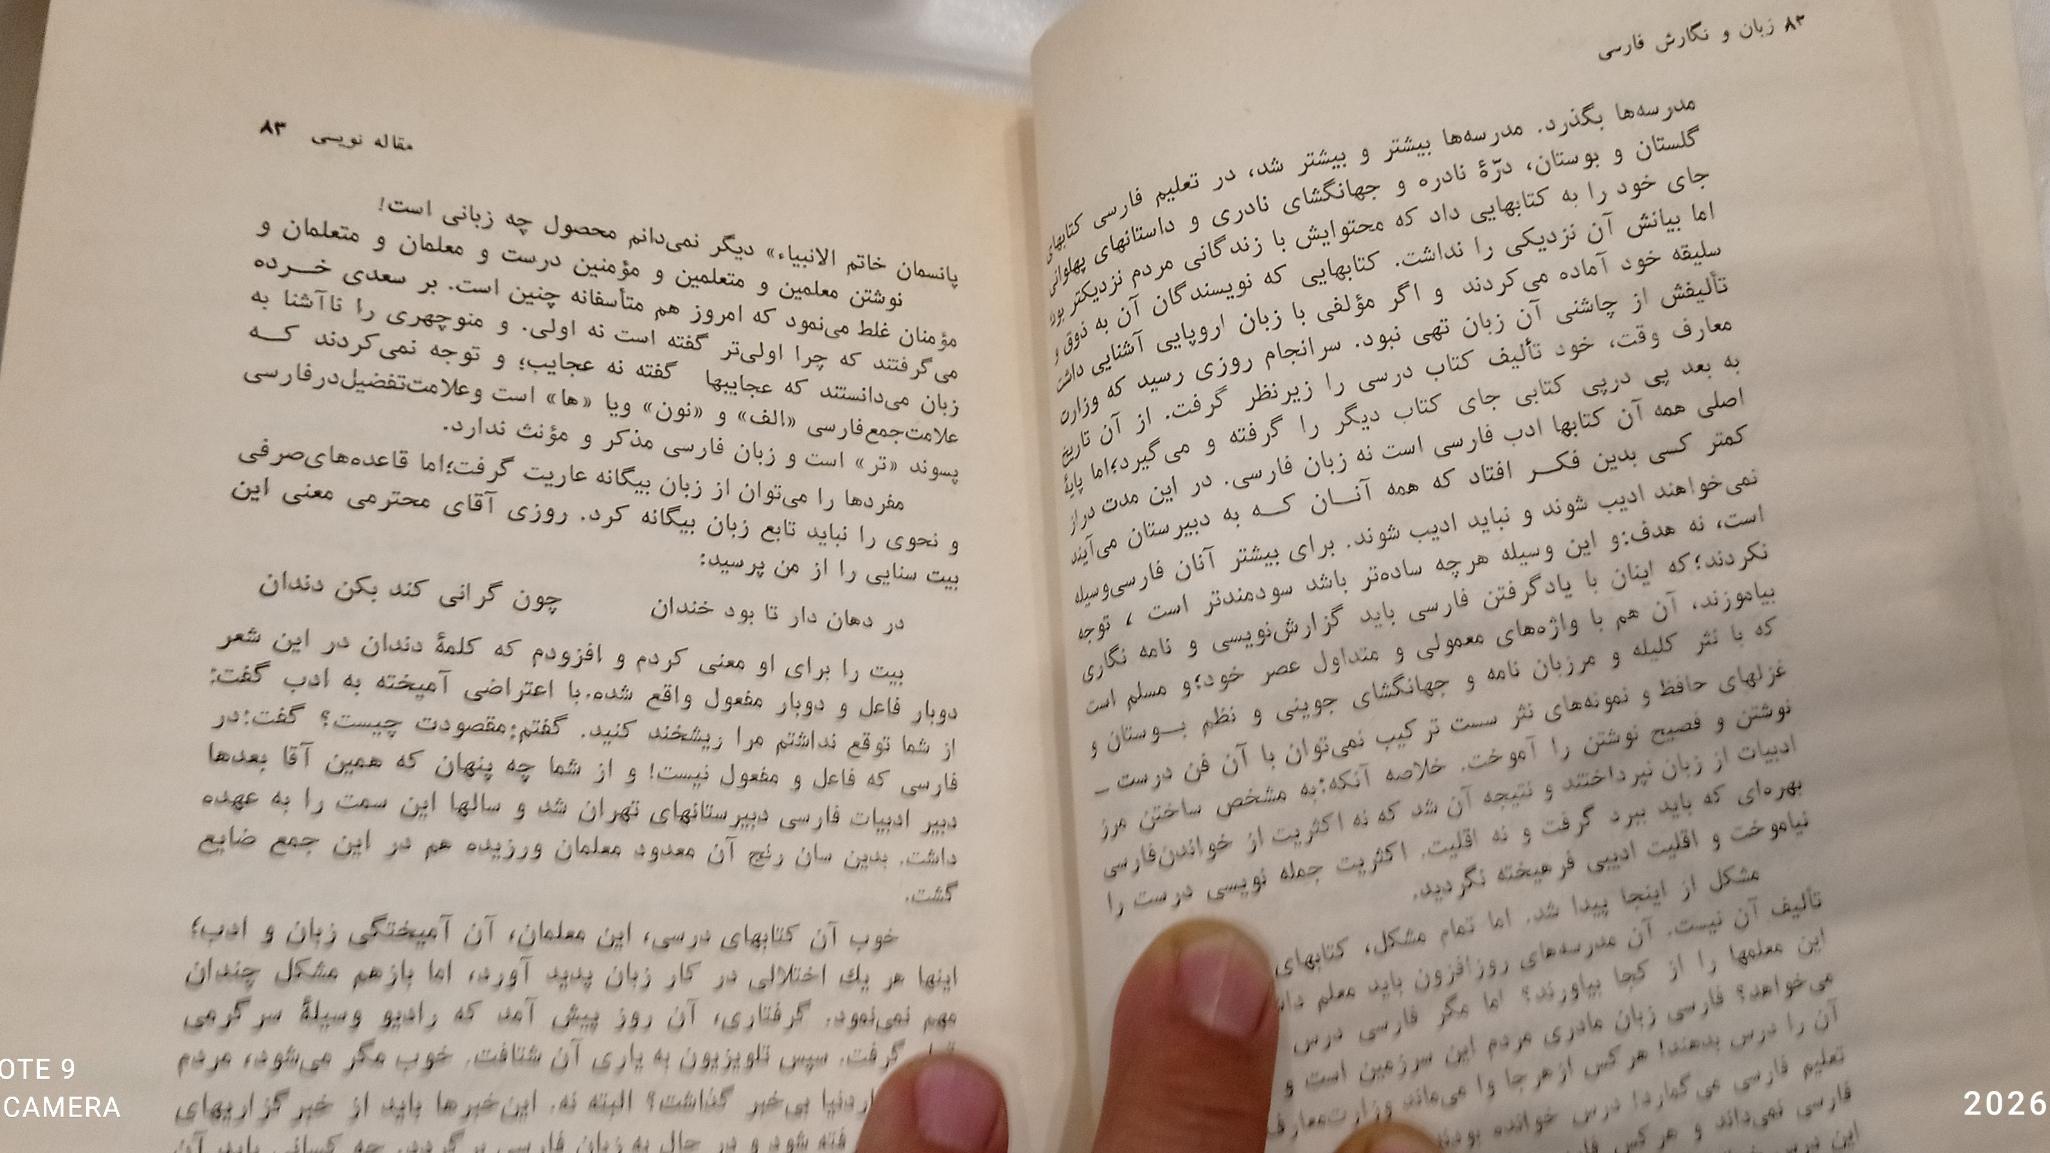 ۸۳ زبان و نگارش فارسی
مدرسه‌ها بگذرد. مدرسه‌ها بیشتر و بیشتر شد، در تعلیم فارسی کتابهای
گلستان و بوستان، درّهٔ نادره و جهانگشای نادری و داستانهای پهلوانی
جای خود را به کتابهایی داد که محتوایش با زندگانی مردم نزدیکتر بود
اما بیانش آن نزدیکی را نداشت. کتابهایی که نویسندگان آن به ذوق و
سلیقه خود آماده می‌کردند و اگر مؤلفی با زبان اروپایی آشنایی داشت
تألیفش از چاشنی آن زبان تهی نبود. سرانجام روزی رسید که وزارت
معارف وقت، خود تألیف کتاب درسی را زیرنظر گرفت. از آن تاریخ
به بعد پی درپی کتابی جای کتاب دیگر را گرفته و می‌گیرد؛اما پایهٔ
اصلی همه آن کتابها ادب فارسی است نه زبان فارسی. در این مدت دراز
کمتر کسی بدین فکر افتاد که همه آنان که به دبیرستان می‌آیند
نمی‌خواهند ادیب شوند و نباید ادیب شوند. برای بیشتر آنان فارسی‌وسیله
است، نه هدف:و این وسیله هرچه ساده‌تر باشد سودمندتر است ، توجه
نکردند؛که اینان با یادگرفتن فارسی باید گزارش‌نویسی و نامه نگاری
بیاموزند، آن هم با واژه‌های معمولی و متداول عصر خود؛و مسلم است
که با نثر کلیله و مرزبان نامه و جهانگشای جوینی و نظم بوستان و
غزلهای حافظ و نمونه‌های نثر سست ترکیب نمی‌توان با آن فن درست ـ
نوشتن و فصیح نوشتن را آموخت. خلاصه آنکه:به مشخص ساختن مرز
ادبیات از زبان نپرداختند و نتیجه آن شد که نه اکثریت از خواندن‌فارسی
بهره‌ای که باید ببرد گرفت و نه اقلیت. اکثریت جمله نویسی درست را
نیاموخت و اقلیت ادیبی فرهیخته نگردید.
مشکل از اینجا پیدا شد. اما تمام مشکل، کتابهای
تألیف آن نیست. آن مدرسه‌های روزافزون باید معلم
این معلمها را از کجا بیاورند؟ اما مگر فارسی درس
می‌خواهد؟ فارسی زبان مادری مردم این سرزمین است و
آن را درس بدهند! هرکس ازهرجا وا می‌ماند وزارت‌معارف
تعلیم فارسی می‌گمارد! درس خوانده بودند
فارسی نمی‌داند و هرکس
این
مقاله نویسی ۸۳
پانسمان خاتم الانبیاء» دیگر نمی‌دانم محصول چه زبانی است!
نوشتن معلمین و متعلمین و مؤمنین درست و معلمان و متعلمان و
مؤمنان غلط می‌نمود که امروز هم متأسفانه چنین است. بر سعدی خرده
می‌گرفتند که چرا اولی‌تر گفته است نه اولی. و منوچهری را ناآشنا به
زبان می‌دانستند که عجایبها گفته نه عجایب؛ و توجه نمی‌کردند که
علامت‌جمع‌فارسی «الف» و «نون» ویا «ها» است وعلامت‌تفضیل‌درفارسی
پسوند «تر» است و زبان فارسی مذکر و مؤنث ندارد.
مفردها را می‌توان از زبان بیگانه عاریت گرفت؛اما قاعده‌های‌صرفی
و نحوی را نباید تابع زبان بیگانه کرد. روزی آقای محترمی معنی این
بیت سنایی را از من پرسید:
در دهان دار تا بود خندان چون گرانی کند بکن دندان
بیت را برای او معنی کردم و افزودم که کلمهٔ دندان در این شعر
دوبار فاعل و دوبار مفعول واقع شده.با اعتراضی آمیخته به ادب گفت:
از شما توقع نداشتم مرا ریشخند کنید. گفتم:مقصودت چیست؟ گفت:در
فارسی که فاعل و مفعول نیست! و از شما چه پنهان که همین آقا بعدها
دبیر ادبیات فارسی دبیرستانهای تهران شد و سالها این سمت را به عهده
داشت. بدین سان رنج آن معدود معلمان ورزیده هم در این جمع ضایع
گشت.
خوب آن کتابهای درسی، این معلمان، آن آمیختگی زبان و ادب؛
اینها هر یك اختلالی در کار زبان پدید آورد، اما بازهم مشکل چندان
مهم نمی‌نمود. گرفتاری، آن روز پیش آمد که رادیو وسیلهٔ سرگرمی
گرفت. سپس تلویزیون به یاری آن شتافت. خوب مگر می‌شود، مردم
بی‌خبر گذاشت؟ البته نه. این‌خبرها باید از خبرگزاریهای
شود و در حال به زبان فارسی برگردد. چه کسانی باید آن
OTE 9
CAMERA
2026